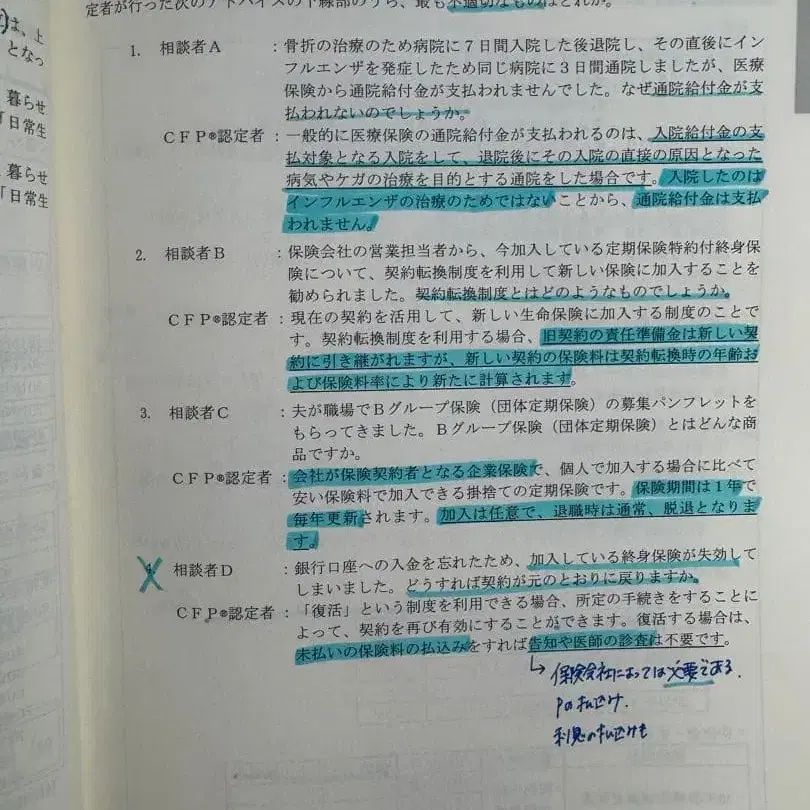 定者が行った次のアドバイスの下線部のうち、最も不適切なものはどれか。
は、上
となっ
暮らせ
「日常生
暮らせ
「日常生
1. 相談者A :骨折の治療のため病院に7日間入院した後退院し、その直後にイン
フルエンザを発症したため同じ病院に3日間通院しましたが、医療
保険から通院給付金が支払われませんでした。なぜ通院給付金が支
払われないのでしょうか。
CFP®認定者:一般的に医療保険の通院給付金が支払われるのは、入院給付金の支
払対象となる入院をして、退院後にその入院の直接の原因となった
病気やケガの治療を目的とする通院をした場合です。入院したのは
インフルエンザの治療のためではないことから、通院給付金は支払
われません。
2. 相談者B :保険会社の営業担当者から、今加入している定期保険特約付終身保
険について、契約転換制度を利用して新しい保険に加入することを
勧められました。契約転換制度とはどのようなものでしょうか。
CFP®認定者:現在の契約を活用して、新しい生命保険に加入する制度のことで
す。契約転換制度を利用する場合、旧契約の責任準備金は新しい契
約に引き継がれますが、新しい契約の保険料は契約転換時の年齢お
よび保険料率により新たに計算されます。
3. 相談者C :夫が職場でBグループ保険(団体定期保険)の募集パンフレットを
もらってきました。Bグループ保険(団体定期保険)とはどんな商
品ですか。
CFP®認定者:会社が保険契約者となる企業保険で、個人で加入する場合に比べて
安い保険料で加入できる掛捨ての定期保険です。保険期間は1年で
毎年更新されます。加入は任意で、退職時は通常、脱退となりま
す。
4. 相談者D :銀行口座への入金を忘れたため、加入している終身保険が失効して
しまいました。どうすれば契約が元のとおりに戻りますか。
CFP®認定者:「復活」という制度を利用できる場合、所定の手続きをすることに
よって、契約を再び有効にすることができます。復活する場合は、
未払いの保険料の払込みをすれば告知や医師の診査は不要です。
↳ 保険会社によっては必要である.
Pの払込み.
利息の払込みも